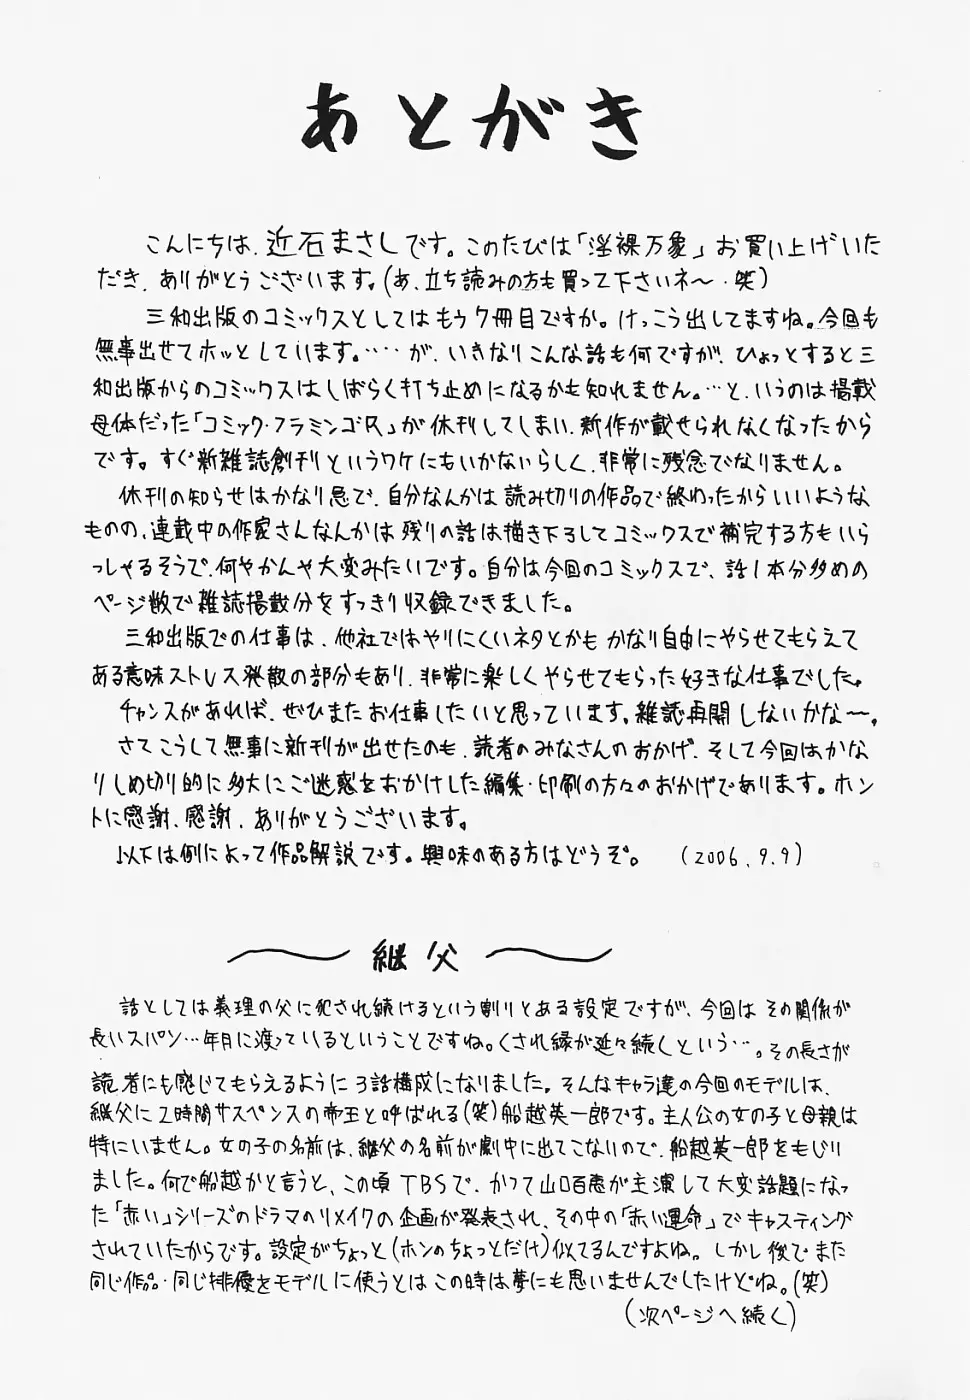 あとがき
こんにちは、近石まさしです。このたびは「淫裸万象」お買い上げいた
だき、ありがとうございます。(あ、立ち読みの方も買って下さいネ〜・笑)
三和出版のコミックスとしてはもう7冊目ですか。けっこう出してますね。今回も
無事出せてホッとしています。‥‥が、いきなりこんな話も何ですが、ひょっとすると三
和出版からのコミックスはしばらく打ち止めになるかも知れません。…と、いうのは掲載
母体だった「コミック・フラミンゴR」が休刊してしまい、新作が載せられなくなったから
です。すぐ新雑誌創刊というワケにもいかないらしく、非常に残念でなりません。
休刊の知らせはかなり急で、自分なんかは読み切りの作品で終わったからいいような
ものの、連載中の作家さんなんかは残りの話は描き下ろしてコミックスで補完する方もいら
っしゃるそうで、何やかんや大変みたいです。自分は今回のコミックスで、話1本分多めの
ページ数で雑誌掲載分をすっきり収録できました。
三和出版での仕事は、他社ではやりにくいネタとかもかなり自由にやらせてもらえて
ある意味ストレス発散の部分もあり、非常に楽しくやらせてもらった好きな仕事でした。
チャンスがあれば、ぜひまたお仕事したいと思っています。雑誌再開しないかな〜。
さてこうして無事に新刊が出せたのも、読者のみなさんのおかげ、そして今回はかな
りしめ切り的に多大にご迷惑をおかけした編集・印刷の方々のおかげであります。ホン
トに感謝、感謝、ありがとうございます。
以下は例によって作品解説です。興味のある方はどうぞ。 (2006.9.9)
〜 継父 〜
話としては義理の父に犯され続けるという割りとある設定ですが、今回はその関係が
長いスパン…年月に渡っているということですね。くされ縁が延々続くという…。その長さが
読者にも感じてもらえるように3話構成になりました。そんなキャラ達の今回のモデルは、
継父に2時間サスペンスの帝王と呼ばれる(笑)船越英一郎です。主人公の女の子と母親は
特にいません。女の子の名前は、継父の名前が劇中に出てこないので、船越英一郎をもじり
ました。何で船越かと言うと、この頃TBSで、かつて山口百恵が主演して大変話題になっ
た「赤い」シリーズのドラマのリメイクの企画が発表され、その中の「赤い運命」でキャスティング
されていたからです。設定がちょっと(ホンのちょっとだけ)似てるんですよね。しかし後でまた
同じ作品・同じ俳優をモデルに使うとはこの時は夢にも思いませんでしたけどね。(笑)
(次ページへ続く)